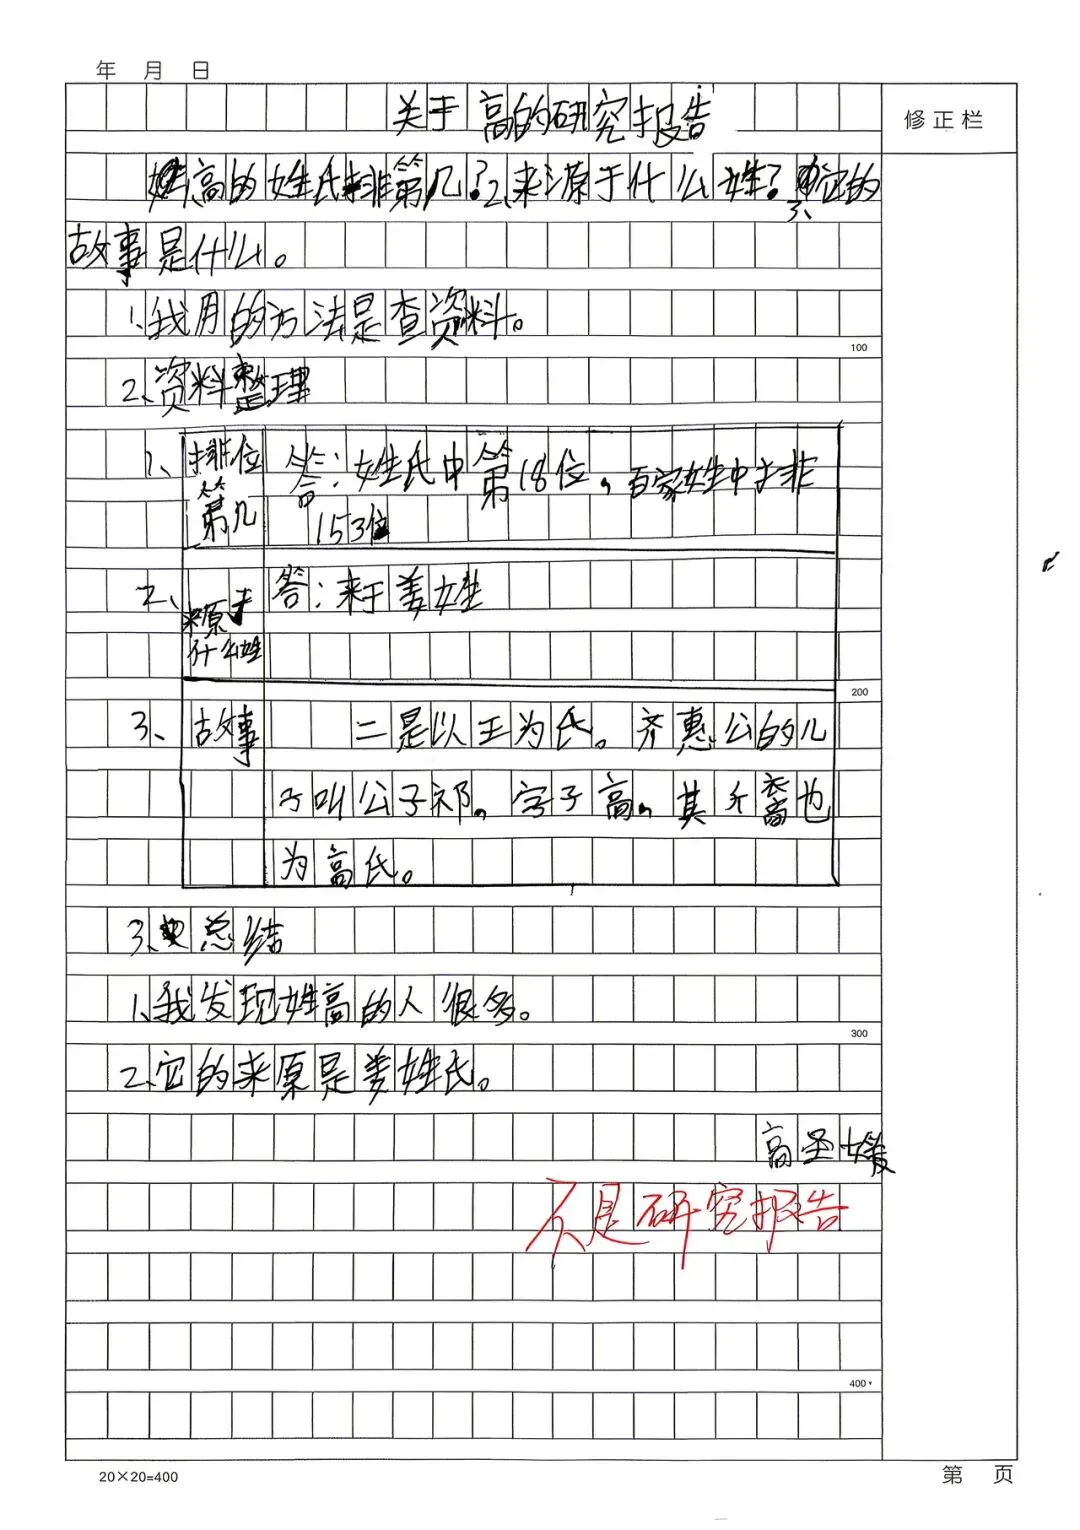 年 月 日
关于高的研究报告
修正栏
高的姓氏排第几？2、来源于什么姓？3、它的
故事是什么。
1、我用的方法是查资料。
100
2、资料整理
1、排位第几 答：姓氏中第18位，百家姓中排
153位
2、来原于什么姓 答：来于姜姓
200
3、故事 二是以王为氏。齐惠公的儿
子叫公子祁，字子高，其后裔也
为高氏。
3、总结
1、我发现姓高的人很多。
300
2、它的来原是姜姓氏。
高圣媛
不是研究报告
400
20×20=400
第 页